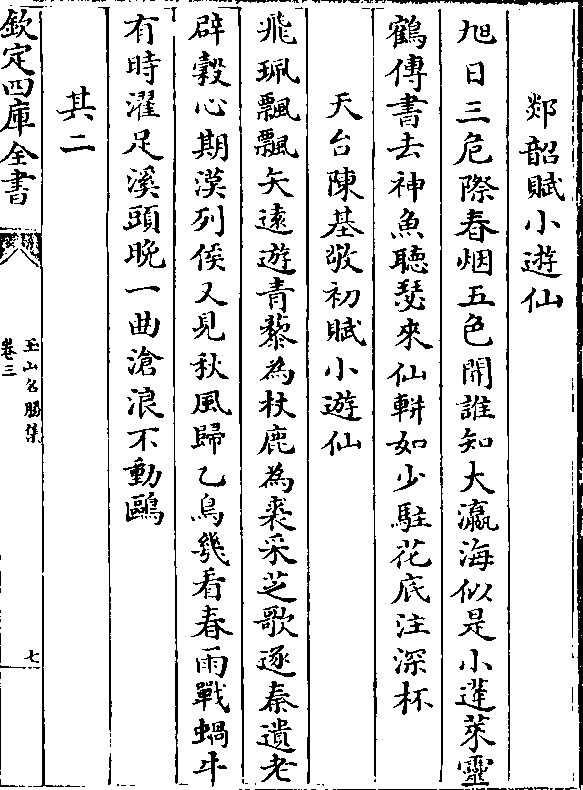 郯韶賦小遊仙
旭日三危際春烟五色開誰知大瀛海似是小蓬萊靈
鶴傳書去神魚聽瑟來仙軿如少駐花底注深杯
天台陳基敬初賦小遊仙
飛珮飄飄矢遠遊青藜為杖鹿為裘采芝歌逐秦遺老
辟穀心期漢列侯又見秋風歸乙鳥幾看春雨戰蝸牛
有時濯足溪頭晚一曲滄浪不動鷗
其二
欽定四庫全書
玉山名勝集
卷三
七